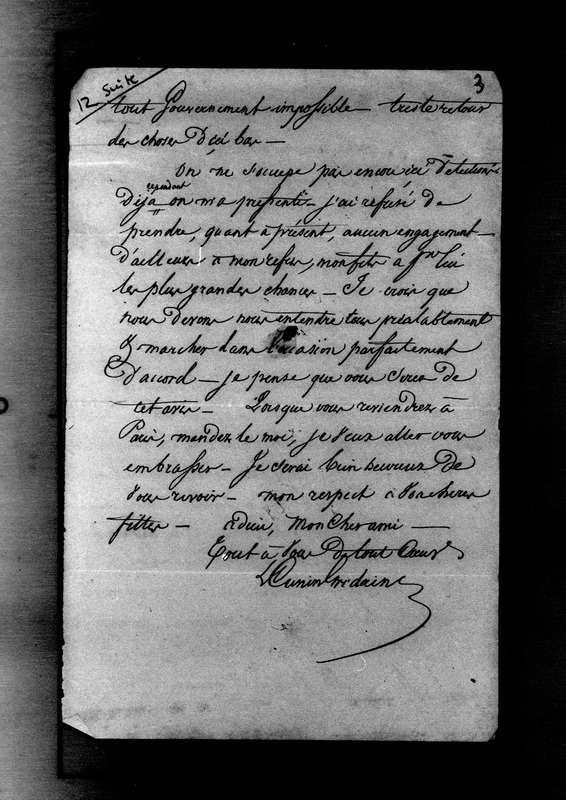 12 Suite
3
tout Gouvernement impossible — triste retour
des choses d'ici bas —
On ne s'occupe pas encore ici d'élections
cependant
Déjà on m'a pressenti — j'ai refusé de
prendre, quant à présent, aucun engagement —
d'ailleurs à mon refus, mon fils a pr lui
les plus grandes chances — Je crois que
nous devons nous entendre tous préalablement
& marcher dans l'occasion parfaitement
d'accord — je pense que vous serez de
cet avis — Lorsque vous reviendrez à
Paris, mandez le moi, je veux aller vous
embrasser — Je serai bien heureux de
vous revoir — mon respect à vos chères
filles — adieu, mon cher ami —
Tout à vous de tout Cœur
Cunin Gridaine